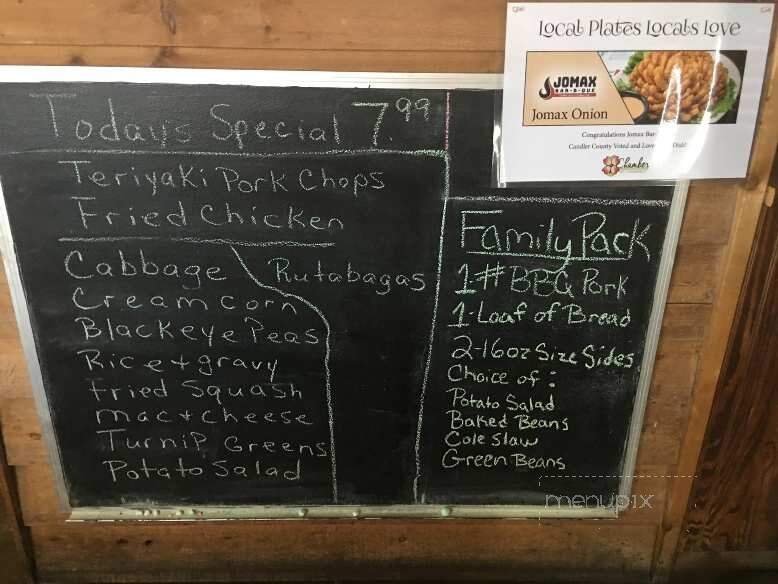 Todays Special 7.99
Teriyaki Pork Chops
Fried Chicken
Cabbage
Rutabagas
Cream corn
Blackeye Peas
Rice + gravy
Fried Squash
mac + cheese
Turnip Greens
Potato Salad
Family Pack
1# BBQ Pork
1-Loaf of Bread
2-16oz Size Sides
Choice of:
Potato Salad
Baked Beans
Cole Slaw
Green Beans
Local Plates Locals Love
JOMAX
BAR-B-QUE
Jomax Onion
Congratulations Jomax
Candler County Voted and
Chamber
menupix